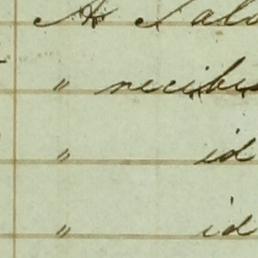 A Sald
" recibi
" id
" id